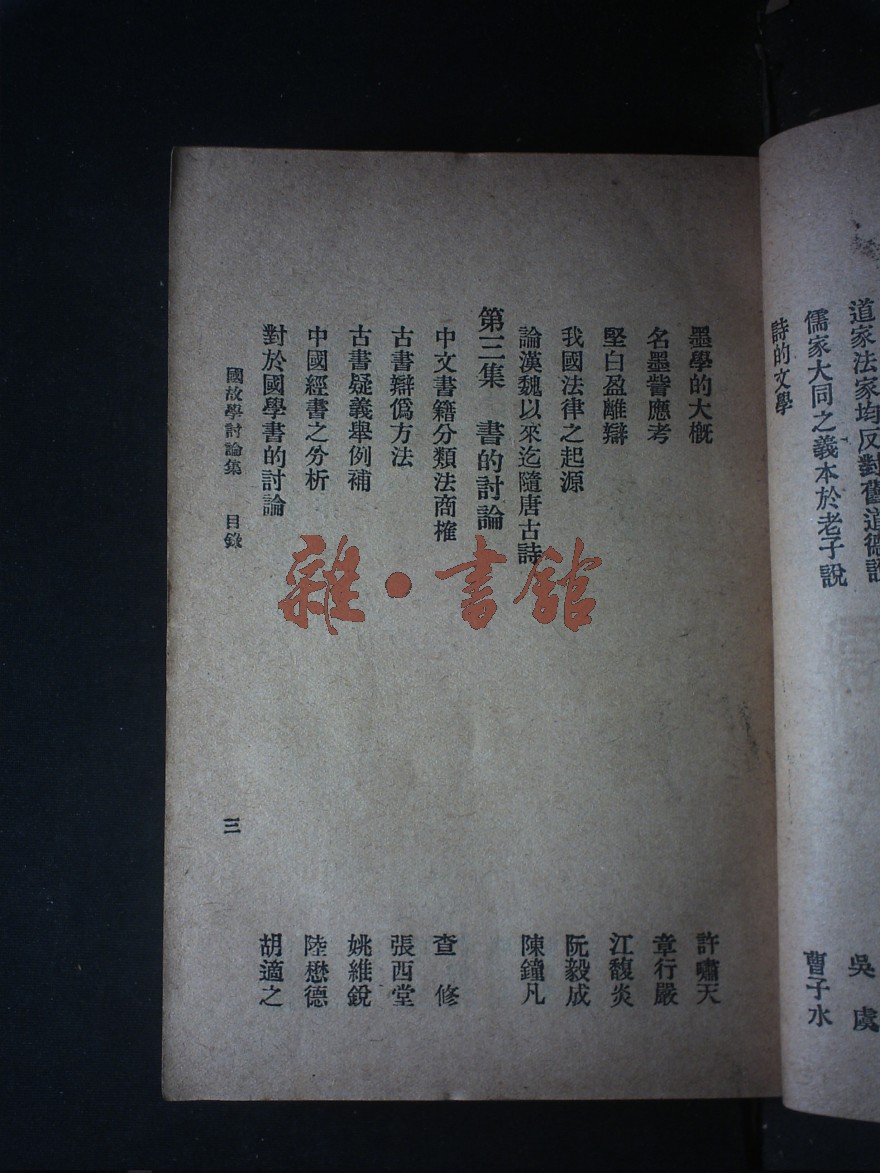 道家法家均反對舊道德說 吳虞
儒家大同之義本於老子說 曹子水
詩的文學
墨學的大概 許嘯天
名墨訾應考 章行嚴
堅白盈離辯 江馥炎
我國法律之起源 阮毅成
論漢魏以來迄隨唐古詩 陳鐘凡
第三集 書的討論
中文書籍分類法商榷 查修
古書辯僞方法 張西堂
古書疑義舉例補 姚維銳
中國經書之分析 陸懋德
對於國學書的討論 胡適之
國故學討論集 目錄 三
雜·書館